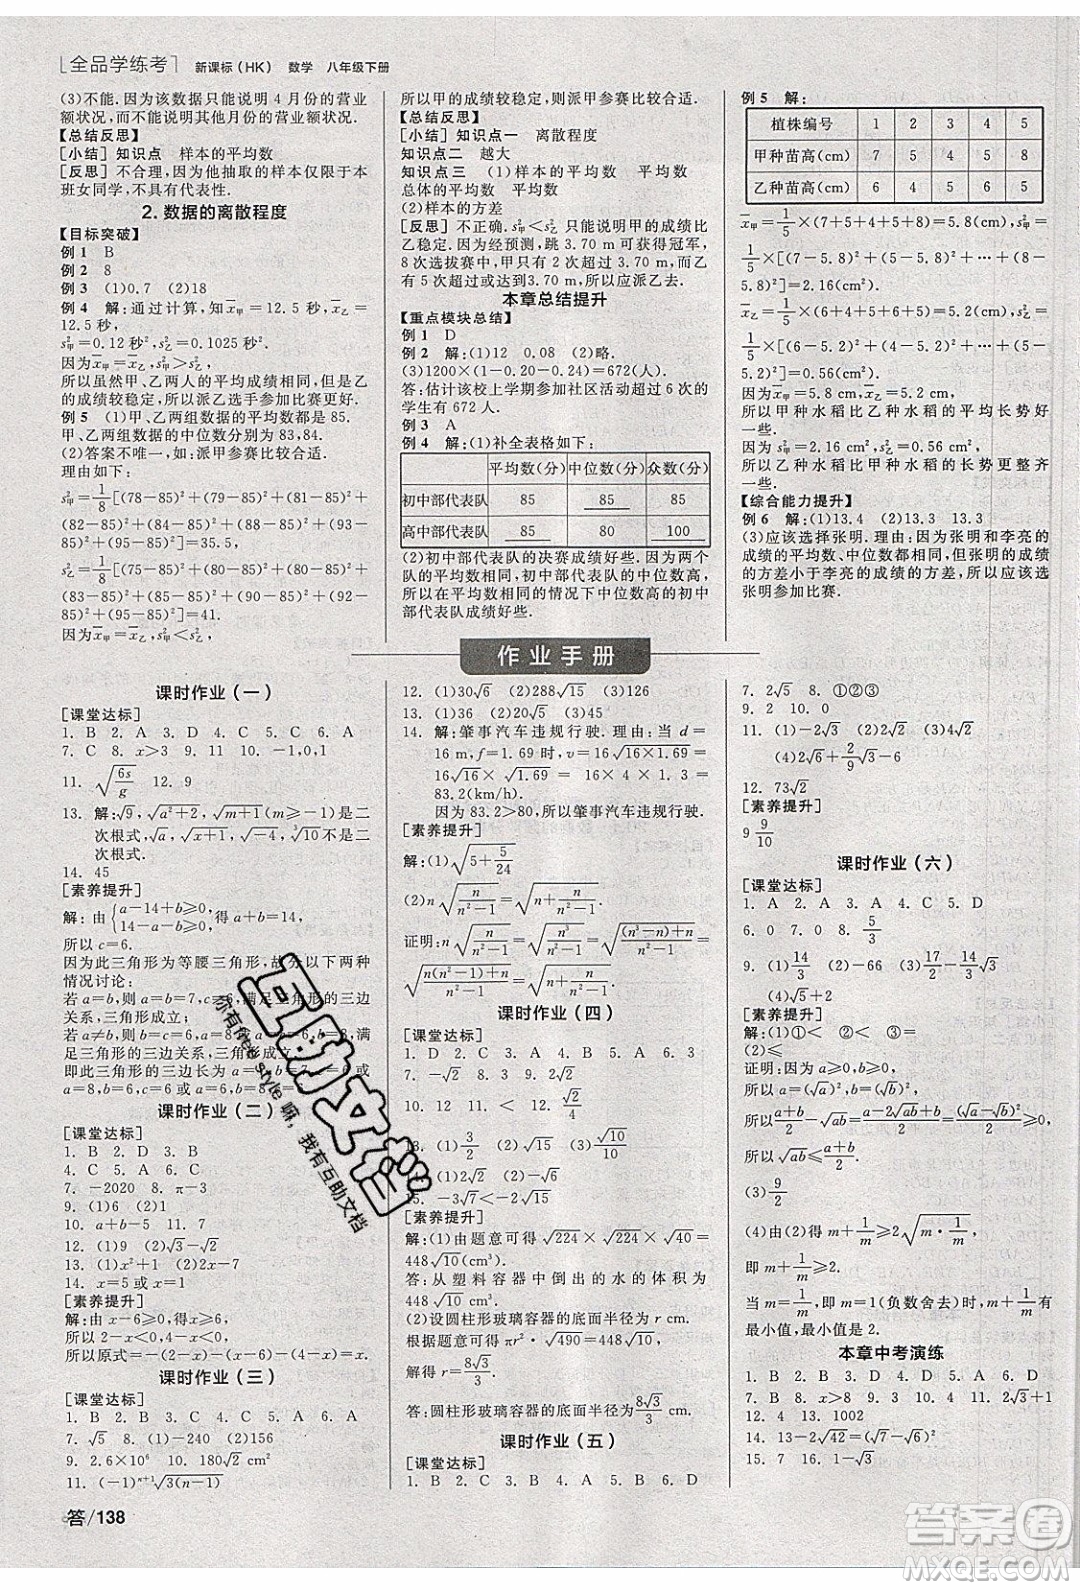 全品学练考 新课标(HK) 数学 八年级下册
(3)不能.因为该数据只能说明4月份的营业
额状况,而不能说明其他月份的营业额状况.
【总结反思】
[小结] 知识点 样本的平均数
[反思] 不合理,因为他抽取的样本仅限于本
班女同学,不具有代表性.
2.数据的离散程度
【目标突破】
例1 B
例2 8
例3 (1)0.7 (2)18
例4 解:通过计算,知x̄甲=12.5秒,x̄乙=
12.5秒,
s²甲=0.12秒²,s²乙=0.1025秒².
因为x̄甲=x̄乙,s²甲>s²乙,
所以虽然甲、乙两人的平均成绩相同,但是乙
的成绩较稳定,所以派乙选手参加比赛更好.
例5 (1)甲、乙两组数据的平均数都是85.
甲、乙两组数据的中位数分别为83,84.
(2)答案不唯一,如:派甲参赛比较合适.
理由如下:
s²甲=1/8[(78-85)²+(79-85)²+(81-85)²+
(82-85)²+(84-85)²+(88-85)²+(93-
85)²+(95-85)²]=35.5,
s²乙=1/8[(75-85)²+(80-85)²+(80-85)²+
(83-85)²+(85-85)²+(90-85)²+(92-
85)²+(95-85)²]=41.
因为x̄甲=x̄乙,s²甲<s²乙,
所以甲的成绩较稳定,所以派甲参赛比较合适.
【总结反思】
[小结] 知识点一 离散程度
知识点二 越大
知识点三 (1)平均数 平均数
总体的平均数 样本的平均数
(2)样本的方差
[反思] 不正确.由s²甲<s²乙只能说明甲比
乙稳定.因为经预测,跳3.70 m可获得冠军,
8次选拔赛中,甲只有2次超过3.70 m,而乙
有5次超过或达到3.70 m,所以应派乙去.
本章总结提升
【重点模块总结】
例1 D
例2 解:(1)12 0.08 (2)略.
(3)1200×(1-0.20-0.24)=672(人).
答:估计该校上学期参加社区活动超过6次的
学生有672人.
例3 A
例4 解:(1)补全表格如下:
平均数(分) 中位数(分) 众数(分)
初中部代表队 85 85 85
高中部代表队 85 80 100
(2)初中部代表队的决赛成绩好些.因为两个
队的平均数相同,初中部代表队的中位数高,
所以在平均数相同的情况下中位数高的初中
部代表队成绩好些.
例5 解:
植株编号 1 2 3 4 5
甲种苗高(cm) 7 5 4 5 8
乙种苗高(cm) 6 4 5 6 5
x̄甲=1/5×(7+5+4+5+8)=5.8(cm),s²甲=
1/5×[(7-5.8)²+(5-5.8)²+…+(8-
5.8)²]=2.16(cm²),
x̄乙=1/5×(6+4+5+6+5)=5.2(cm),s²乙=
1/5×[(6-5.2)²+(4-5.2)²+…+(5-
5.2)²]=0.56(cm²).
因为x̄甲=5.8 cm>x̄乙=5.2 cm,
所以甲种水稻比乙种水稻的平均长势好
一些.
因为s²甲=2.16 cm²>s²乙=0.56 cm²,
所以乙种水稻比甲种水稻的长势更整齐
一些.
【综合能力提升】
例6 解:(1)13.4 (2)13.4 13.3
(3)应该选择张明.因为张明和李亮的
成绩的平均数、中位数都相同,但张明的成绩
的方差小于李亮的成绩的方差,所以应该选
张明参加比赛.
作业手册
课时作业(一)
[课堂达标]
1. B 2. A 3. D 4. C 5. A 6. D
7. C 8. x>3 9. 11 10. -1(0,1)
11. √(6s/g) 12. 9
13. 解:√9,√(a²+2),√(m+1)(m≥-1)是二
次根式.√a,√(x+1),√-4,∛10不是二
次根式.
14. 45
[素养提升]
解:由{a-14+b≥0, 14-a-b≥0,得a+b=14,
所以c=6.
因为此三角形为等腰三角形,故分以下两种
情况讨论:
若a=b,则a=b=7,c=6,满足三角形的三边
关系,三角形成立;
若a≠b,则a=8,b=6或a=6,b=8,c=6,满
足三角形的三边关系,三角形成立.
即此三角形的三边长为a=b=7,c=6或
a=8,b=6,c=6或a=6,b=8,c=6.
课时作业(二)
[课堂达标]
1. B 2. D 3. B
4. C 5. D 6. A
7. -2020 8. π-3
9. (1)6 (2)1
10. a 11. a+b-5
12. (1)-2x (2)x-7
14. x=5或x=1
[素养提升]
解:由题意,得6≤x≤6,
所以x-8<0,x-6≤0,
所以原式=-(x-6)-(x-8)+(6-x)=x.
课时作业(三)
[课堂达标]
1. B 2. B 3. D 4. D 5. A 6. A
7. √5 8. (1)9 (2)240 (2)156
9. 2.6×10⁶ 10. 180√2 cm²
11. (-1)ⁿ⁺¹√(3(n-1))
12. (1)30√6 (2)288√15 (3)126
13. (1)36 (2)20√5 (3)45
14. 解:肇事汽车违规行驶. 理由:当d=
16 m,f=1.69时,v=16√(16×1.69)=
16√16×√1.69=16×4×1.3=
83.2(km/h).
因为83.2>80,所以肇事汽车违规行驶.
[素养提升]
解:(1)√(5+5/24)
(2)n√(n/(n²-1))=√(n+n/(n²-1))
证明:n√(n/(n²-1))=√(n³/(n²-1))=√(((n³-n)+n)/(n²-1))=
√((n(n²-1)+n)/(n²-1))=√(n+n/(n²-1)).
课时作业(四)
[课堂达标]
1. D 2. D 3. C 4. A 5. A 6. 3
7. -√2 8. > 9. √3
10. 12 11. < 12. √2/2
13. (1)3/2 (2)√3 (3)√10/10
15. -3√7<-2√15
[素养提升]
解:(1)由题意可得√224×√224×√10=
448√10(cm³).
答:从塑料容器中倒出的水的体积为
448√10 cm³.
(2)设圆柱形玻璃容器的底面半径为r cm.
根据题意可得πr²·√490=448√10,
解得r=8√3/3.
答:圆柱形玻璃容器的底面半径为8√3/3 cm.
课时作业(五)
[课堂达标]
1. B 2. C 3. C 4. A 5. B 6. D
7. 2√5 8. ①②③
9. 2 10. 0
11. (1)-2√3 (2)√2 (3)4√2
(4)2√6+2/9√3-√2
12. 73√2
[素养提升]
9 9/10
课时作业(六)
[课堂达标]
1. A 2. A 3. A 4. C 5. D
6. 0 7. 0 8. 5/3
9. (1)14/3 (2)-2√6 (3)17/2-14/3√3
[素养提升]
解:(1)①< ②< ③=
(2)≤
证明:因为a≥0,b>0,
所以a=(√a)²,b=(√b)²,
所以(a+b)/2-√ab=(a-2√ab+b)/2=(√a-√b)²/2≥0,
所以√ab≤(a+b)/2.
(3)9/2
(4)由(2)得m+1/m≥2√(m·1/m)=2,
即m+1/m≥2,
当m=1/m,即m=1(负数舍去)时,m+1/m有
最小值,最小值是2.
本章中考演练
1. B 2. B 3. D 4. C 5. D
7. C 8. B 9. 5
12. 4 13. 1002
15. 7 16. 1-√3
答/138
互助文档
你有free style嘛,我有互助文档
答案圈
MXQE.COM